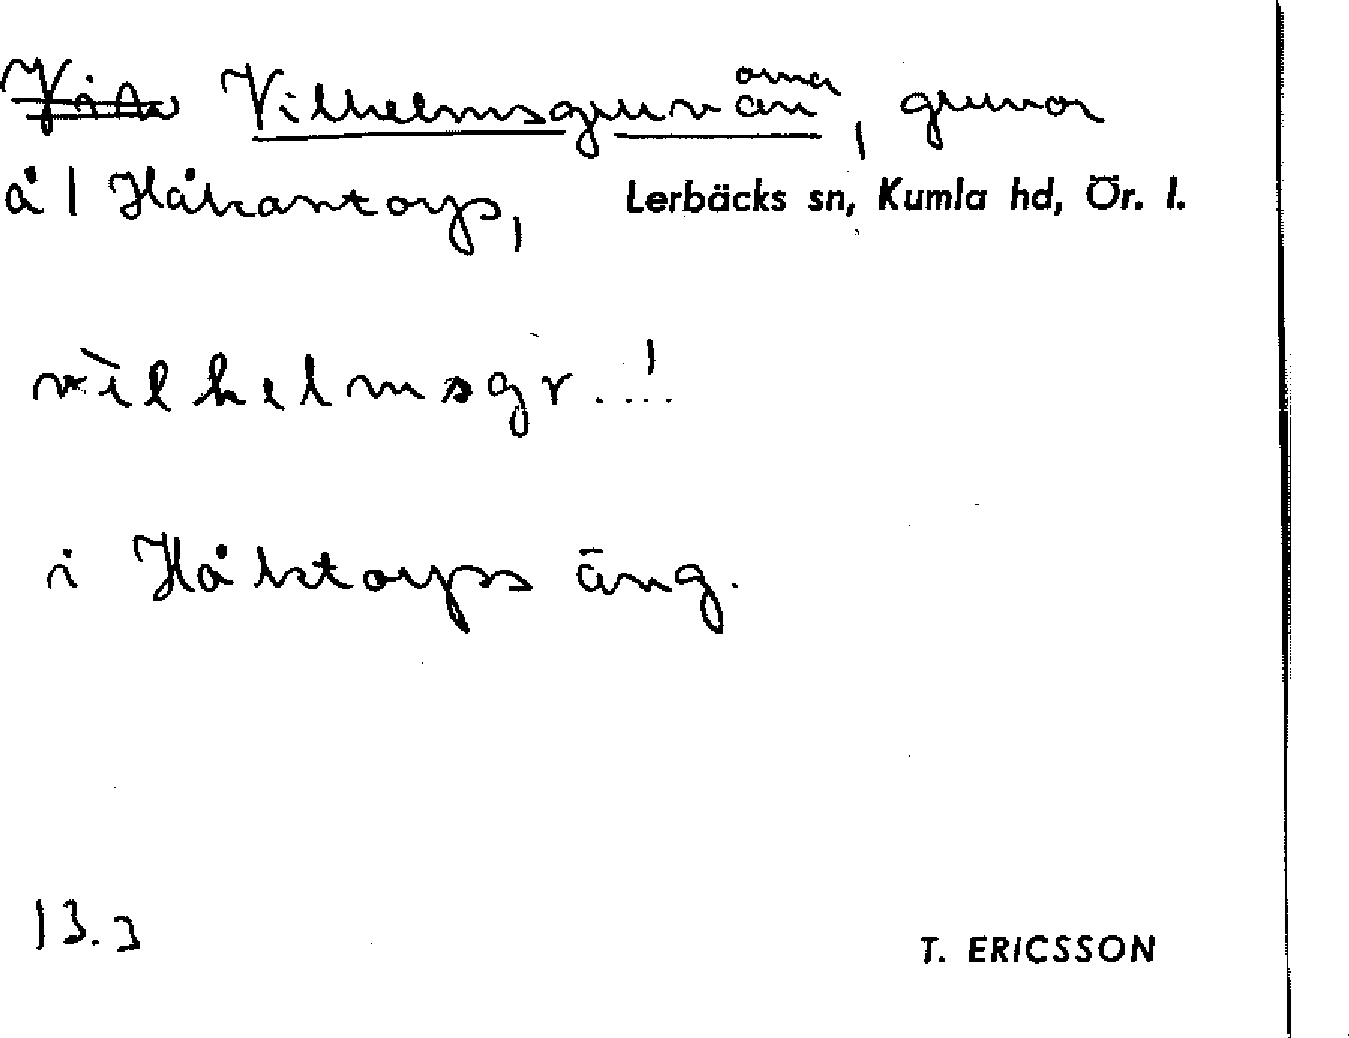 Vilhelmsgruvan orna, gruvor
å 1 Håkantorp, Lerbäcks sn, Kumla hd, Ör. l.
vìlhelmsgr....!
i Håktorps äng.
13.3
T. ERICSSON